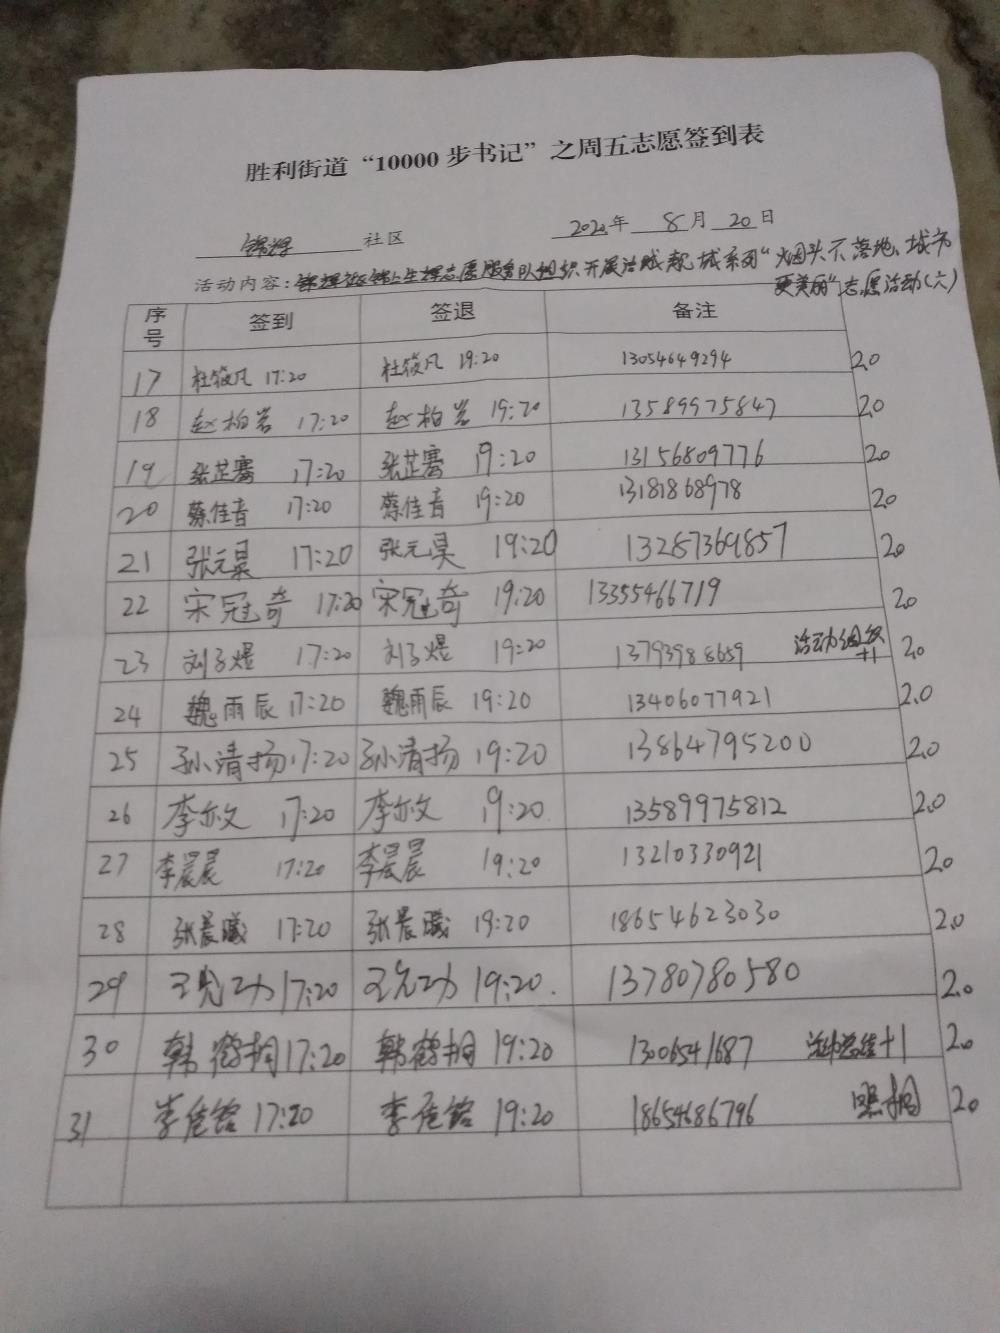 胜利街道“10000步书记”之周五志愿签到表
锦辉 社区 2020年 8月 20日
活动内容：锦辉社区锦上生辉志愿服务队组织开展治贼靓城系列“烟头不落地、城市
更美丽”志愿活动(六)
序号 签到 签退 备注
17 杜筱凡 17:20 杜筱凡 19:20 13054649294 2.0
18 赵柏岩 17:20 赵柏岩 19:20 13589975847 2.0
19 张芷骞 17:20 张芷骞 19:20 13156809776 2.0
20 蔡佳音 17:20 蔡佳音 19:20 13181868978 2.0
21 张元昊 17:20 张元昊 19:20 13287369857 2.0
22 宋冠奇 17:20 宋冠奇 19:20 13355466719 2.0
23 刘子煜 17:20 刘子煜 19:20 13793988659 活动组织+1 2.0
24 魏雨辰 17:20 魏雨辰 19:20 13406077921 2.0
25 孙清扬 17:20 孙清扬 19:20 13864795200 2.0
26 李亦文 17:20 李亦文 19:20 13589975812 2.0
27 李晨晨 17:20 李晨晨 19:20 13210330921 2.0
28 张晨曦 17:20 张晨曦 19:20 18654623030 2.0
29 王允功 17:20 王允功 19:20. 13780780580 2.0
30 韩鹤桐 17:20 韩鹤桐 19:20 1306541687 活动总结+1 2.0
31 李佳铭 17:20 李佳铭 19:20 18654686796 2.0